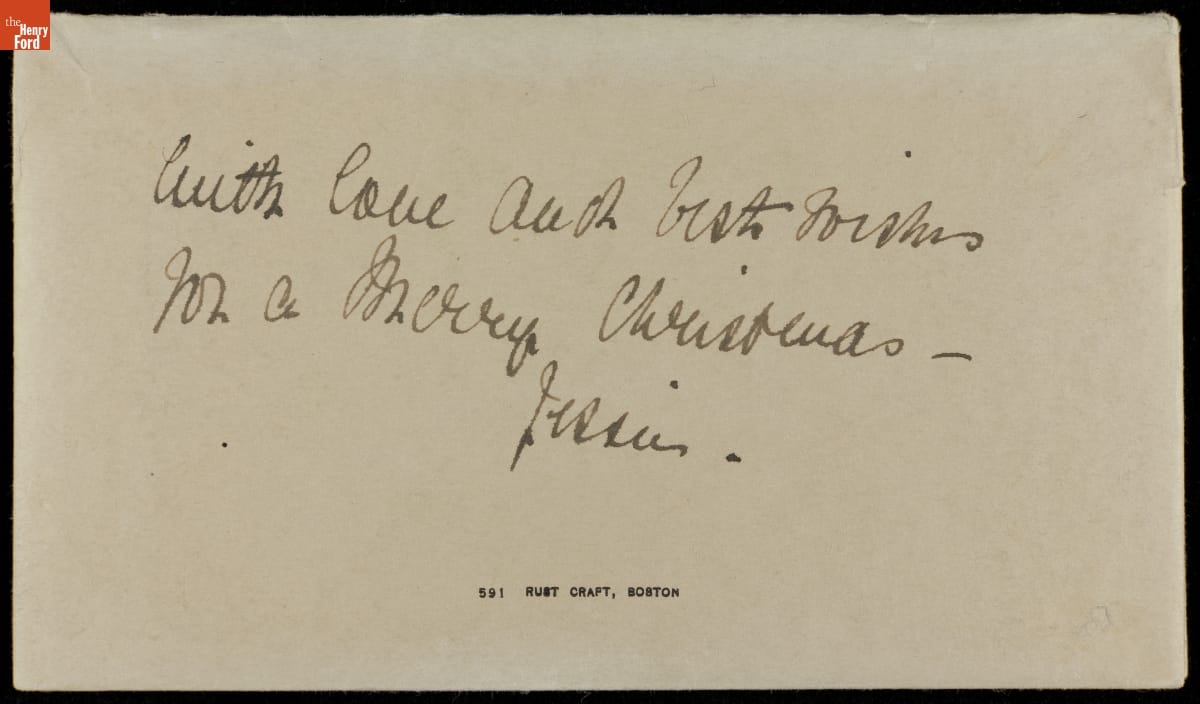 the
Henry
Ford
With love and best wishes
for a Merry Christmas –
Jessie.
591 RUST CRAFT, BOSTON